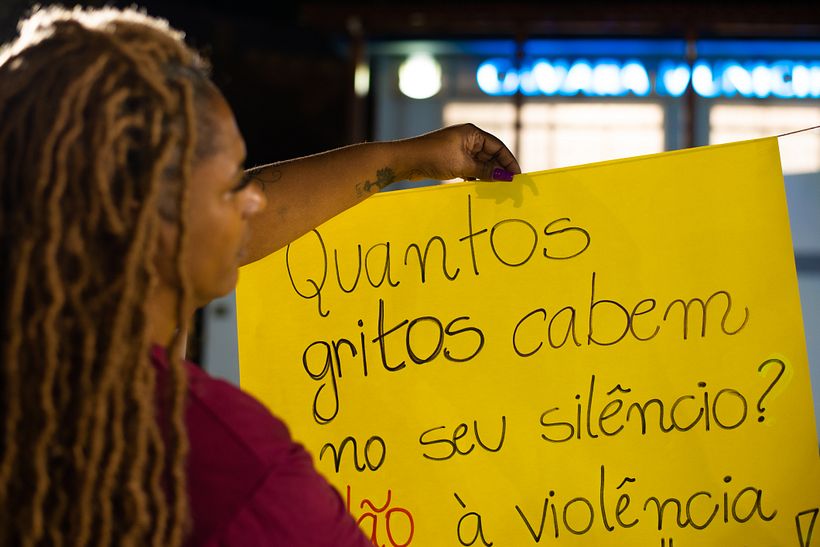 Quantos
gritos cabem
no seu silêncio?
Não à violência